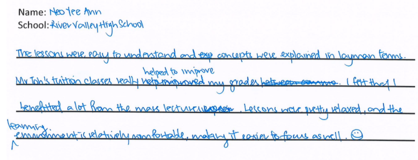 Name: Neo Yee Ann
School: River Valley High School
The lessons were easy to understand and concepts were explained in layman terms.
helped to improve
Mr Toh's tuition classes really my grades. I felt that I
benefited a lot from the mass lectures. Lessons were pretty relaxed, and the
learning
environment is relatively comfortable, making it easier to focus as well. ☺